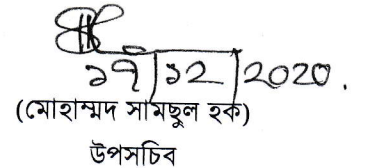 ২৭|১২|2020.
(মোহাম্মদ সামছুল হক)
উপসচিব